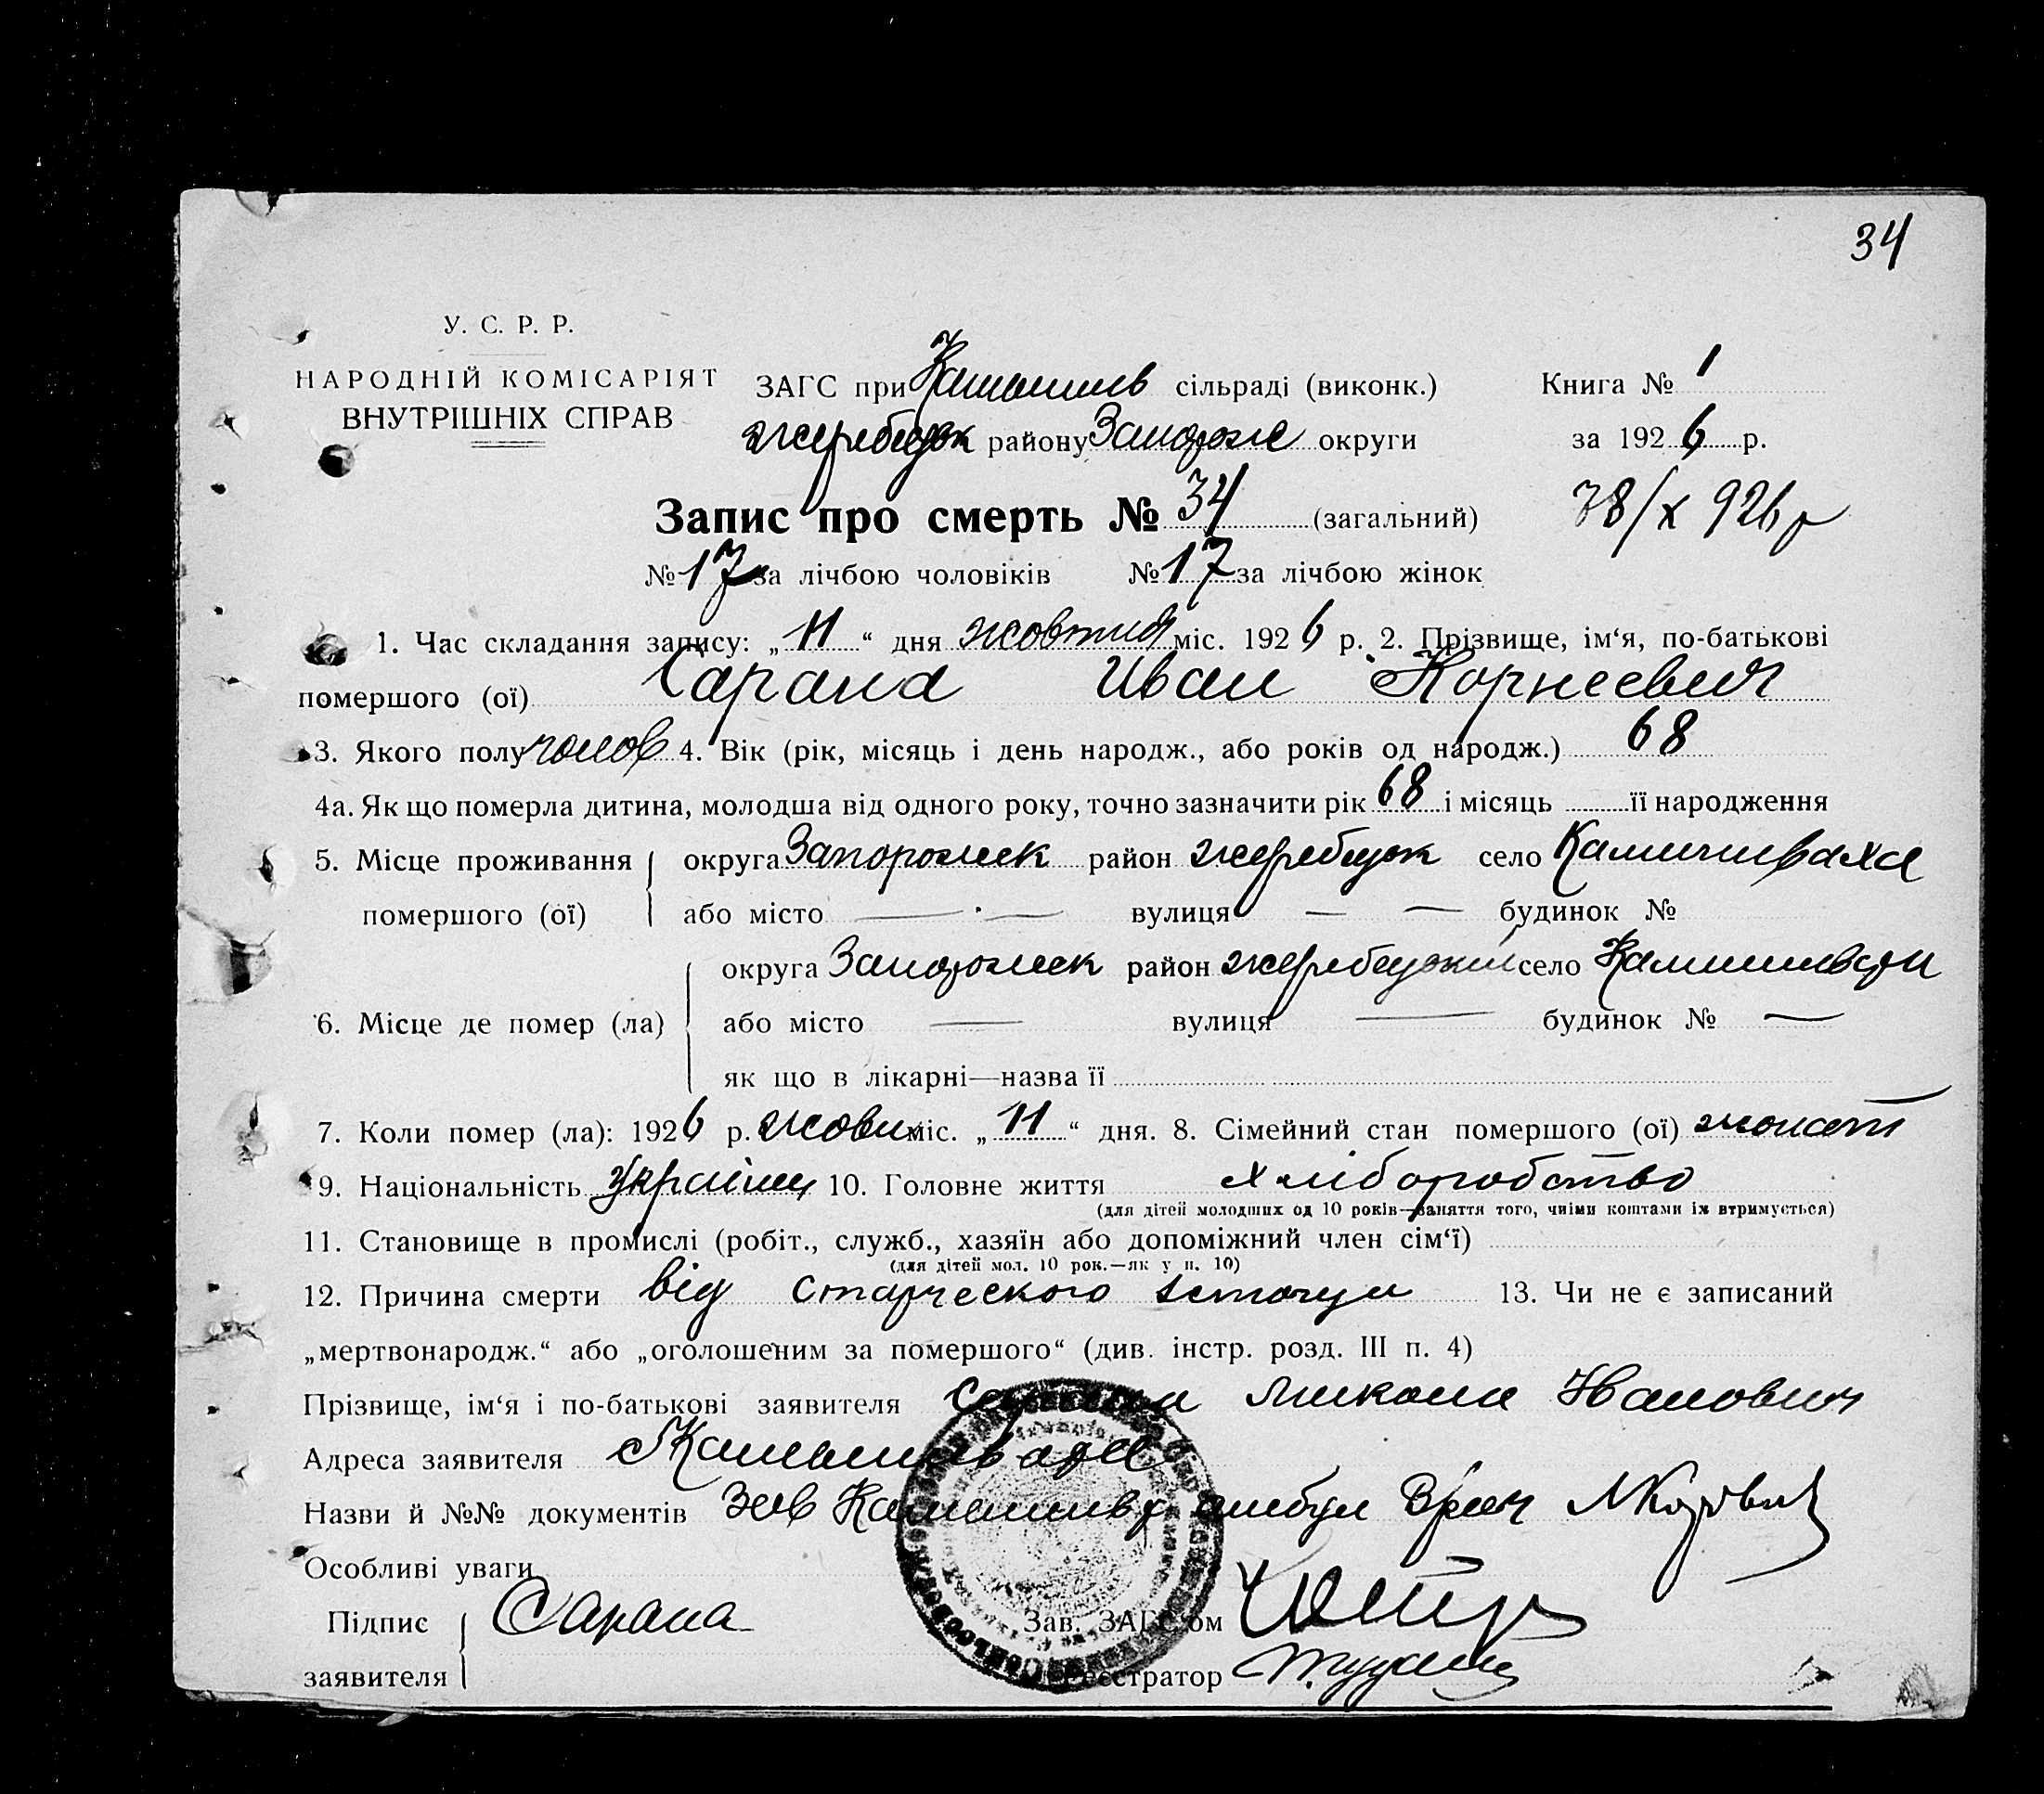 34
У. С. Р. Р.
НАРОДНІЙ КОМІСАРІЯТ
ВНУТРІШНІХ СПРАВ
ЗАГС при Камышев сільраді (виконк.)
Жеребецк району Запорож округи
Книга № 1
за 1926 р.
Запис про смерть № 34 (загальний)
/X 926 р
№ 17 за лічбою чоловіків № 17 за лічбою жінок
1. Час складання запису: „11“ дня жовтня міс. 1926 р. 2. Прізвище, ім‘я, по-батькові
помершого (ої) Сарана Иван Корнеевич
3. Якого полу чолов 4. Вік (рік, місяць і день народж., або років од народж.) 68
4а. Як що померла дитина, молодша від одного року, точно зазначити рік 68 і місяць її народження
5. Місце проживання помершого (ої) округа Запорожск район Жеребецк село Камишеваха
або місто — вулиця — — будинок №
6. Місце де помер (ла) округа Запорожск район Жеребецкий село
або місто — вулиця — будинок № —
як що в лікарні—назва її
7. Коли помер (ла): 1926 р. жовтн міс. „11“ дня. 8. Сімейний стан помершого (ої) жонат
9. Національність Україн 10. Головне життя хліборобство
(для дітей молодших од 10 років—заняття того, чиїми коштами їх втримується)
11. Становище в промислі (робіт., служб., хазяїн або допоміжний член сім‘ї)
(для дітей мол. 10 рок.—як у п. 10)
12. Причина смерти від старческого 13. Чи не є записаний
„мертвонародж.“ або „оголошеним за помершого“ (див. інстр. розд. III п. 4)
Прізвище, ім‘я і по-батькові заявителя Сарана Микола Иванович
Адреса заявителя
Назви й №№ документів Врач
Особливі уваги
Підпис заявителя Сарана
Зав. ЗАГС‘ом
Реєстратор